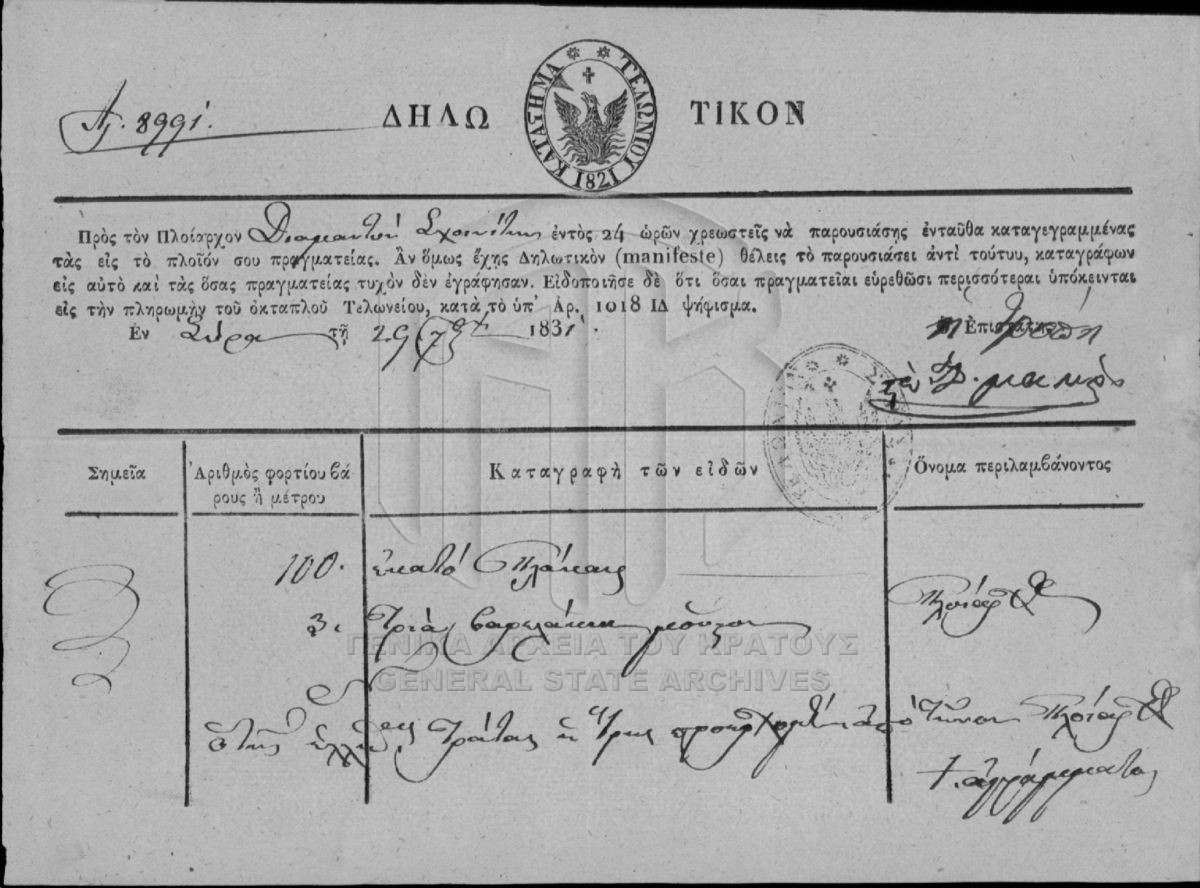 Αρ. 8991.
ΔΗΛΩ ΤΙΚΟΝ
ΚΑΤΑΣΤΗΜΑ ΤΕΛΩΝΙΟΥ 1821
Πρὸς τὸν Πλοίαρχον Διαμαντὴν ἐντὸς 24 ὡρῶν χρεωστεῖς νὰ παρουσιάσῃς ἐνταῦθα καταγεγραμμένας
τὰς εἰς τὸ πλοῖόν σου πραγματείας. Ἂν ὅμως ἔχῃς Δηλωτικὸν (manifeste) θέλεις τὸ παρουσιάσει ἀντὶ τούτυυ, καταγράφων
εἰς αὐτὸ καὶ τὰς ὅσας πραγματείας τυχὸν δὲν ἐγράφησαν. Εἰδοποιῆσε δὲ ὅτι ὅσαι πραγματεῖαι εὑρεθῶσι περισσότεραι ὑπόκεινται
εἰς τὴν πληρωμὴν τοῦ ὀκταπλοῦ Τελωνείου, κατὰ τὸ ὑπ' Ἀρ. 1018 ΙΔ ψήφισμα.
Ἐν Σύρα τῇ 29 7βρ 1831
Ἐπιστάτης
Σημεῖα
Ἀριθμὸς φορτίου βά
ρους ἢ μέτρου
Καταγραφὴ τῶν εἰδῶν
Ὄνομα περιλαμβάνοντος
100. ἑκατὸ Πλάκαις
3. Τρία βαρελάκια
Πλοίαρχ
ΓΕΝΙΚΑ ΑΡΧΕΙΑ ΤΟΥ ΚΡΑΤΟΥΣ
GENERAL STATE ARCHIVES
ὁ τῆς Τράτας Πλοίαρχ
ἀγράμματος